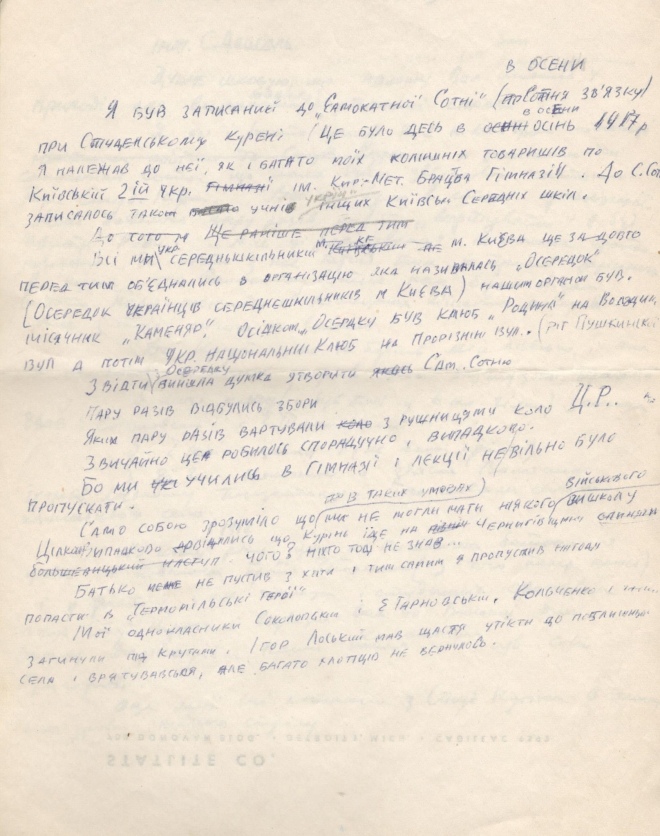 В ОСЕНИ
Я БУВ ЗАПИСАНИЙ ДО „САМОКАТНОЇ СОТНІ" (СОТНЯ ЗВ'ЯЗКУ)
В ОСЕНИ
ПРИ СТУДЕНСЬКОМУ КУРЕНІ (ЦЕ БУЛО ДЕСЬ В ОСІНЬ 1917 р
Я НАЛЕЖАВ ДО НЕЇ, ЯК І БАГАТО МОЇХ КОЛИШНІХ ТОВАРИШІВ ПО
КИЇВСЬКІЙ 2ІЙ УКР. ІМ. КИР.-МЕТ. БРАЦТВА ГІМНАЗІЇ. ДО С. СОТ
ЗАПИСАЛОСЬ ТАКОЖ БАГАТО УЧНІВ ІНЩИХ КИЇВСЬК СЕРЕДНІХ ШКІЛ.
ДО ТОГО М ЩЕ РАНІШЕ ПЕРЕД ТИМ
ВСІ МИ УКР СЕРЕДНЬШКІЛЬНИКИ М. КИЄВА ЩЕ ЗАДОВГО
ПЕРЕД ТИМ ОБ'ЄДНАЛИСЬ В ОРГАНІЗАЦІЮ ЯКА НАЗИВАЛАСЬ „ОСЕРЕДОК"
(ОСЕРЕДОК УКРАЇНЦІВ СЕРЕДНЕШКІЛЬНИКІВ М КИЄВА) НАШИМ ОРГАНОМ БУВ
МІСЯЧНИК „КАМЕНЯР". ОСІДКОМ „ОСЕРДКУ БУВ КЛЮБ „РОДИНА" НА ВОЛОДИМ.
ВУЛ А ПОТІМ УКР. НАЦІОНАЛЬНИЙ КЛЮБ НА ПРОРІЗНІЙ ВУЛ. (РІГ ПУШКИНСЬКОЇ
ОСЕРЕДКУ
ЗВІДТИ ВИЙШЛА ДУМКА УТВОРИТИ ЯКУСЬ САМ. СОТНЮ
ПАРУ РАЗІВ ВІДБУЛИСЬ ЗБОРИ
ПАРУ РАЗІВ ВАРТУВАЛИ З РУШНИЦЯМИ КОЛО Ц.Р..
ЗВИЧАЙНО ЦЕ РОБИЛОСЬ СПОРАДИЧНО І ВИПАДКОВО.
БО МИ УЧИЛИСЬ В ГІМНАЗІЇ І ЛЕКЦІЇ НЕ ВІЛЬНО БУЛО
ПРОПУСКАТИ.
В ТАКИХ УМОВАХ ВІЙСЬКОВОГО
САМО СОБОЮ ЗРОЗУМІЛО ЩО МИ НЕ МОГЛИ МАТИ НІЯКОГО ВИШКОЛУ
ЦІЛКОМ ВИПАДКОВО ДОВІДАЛИСЬ ЩО КУРІНЬ ІДЕ НА ЧЕРНИГІВЩИНУ
БОЛЬШЕВИЦЬКИЙ НАСТУП. ЧОГО? НІХТО ТОДІ НЕ ЗНАВ...
БАТЬКО МЕНЕ НЕ ПУСТИВ З ХАТИ І ТИМ САМИМ Я ПРОПУСТИВ НАГОДУ
ПОПАСТИ В „ТЕРМОПІЛЬСЬКІ ГЕРОЇ"
МОЇ ОДНОКЛАСНИКИ СОКОЛОВСЬКИЙ І ТАРНОВСЬКИЙ, КОЛЬЧЕНКО І
ЗАГИНУЛИ ПІД КРУТАМИ. ІГОР ЛОСЬКИЙ МАВ ЩАСТЯ УТІКТИ ДО ПОБЛИЗЬКОГО
СЕЛА І ВРЯТУВАВСЬЯ, АЛЕ БАГАТО ХЛОПЦІВ НЕ ВЕРНУЛОСЬ.
STATLITE CO.